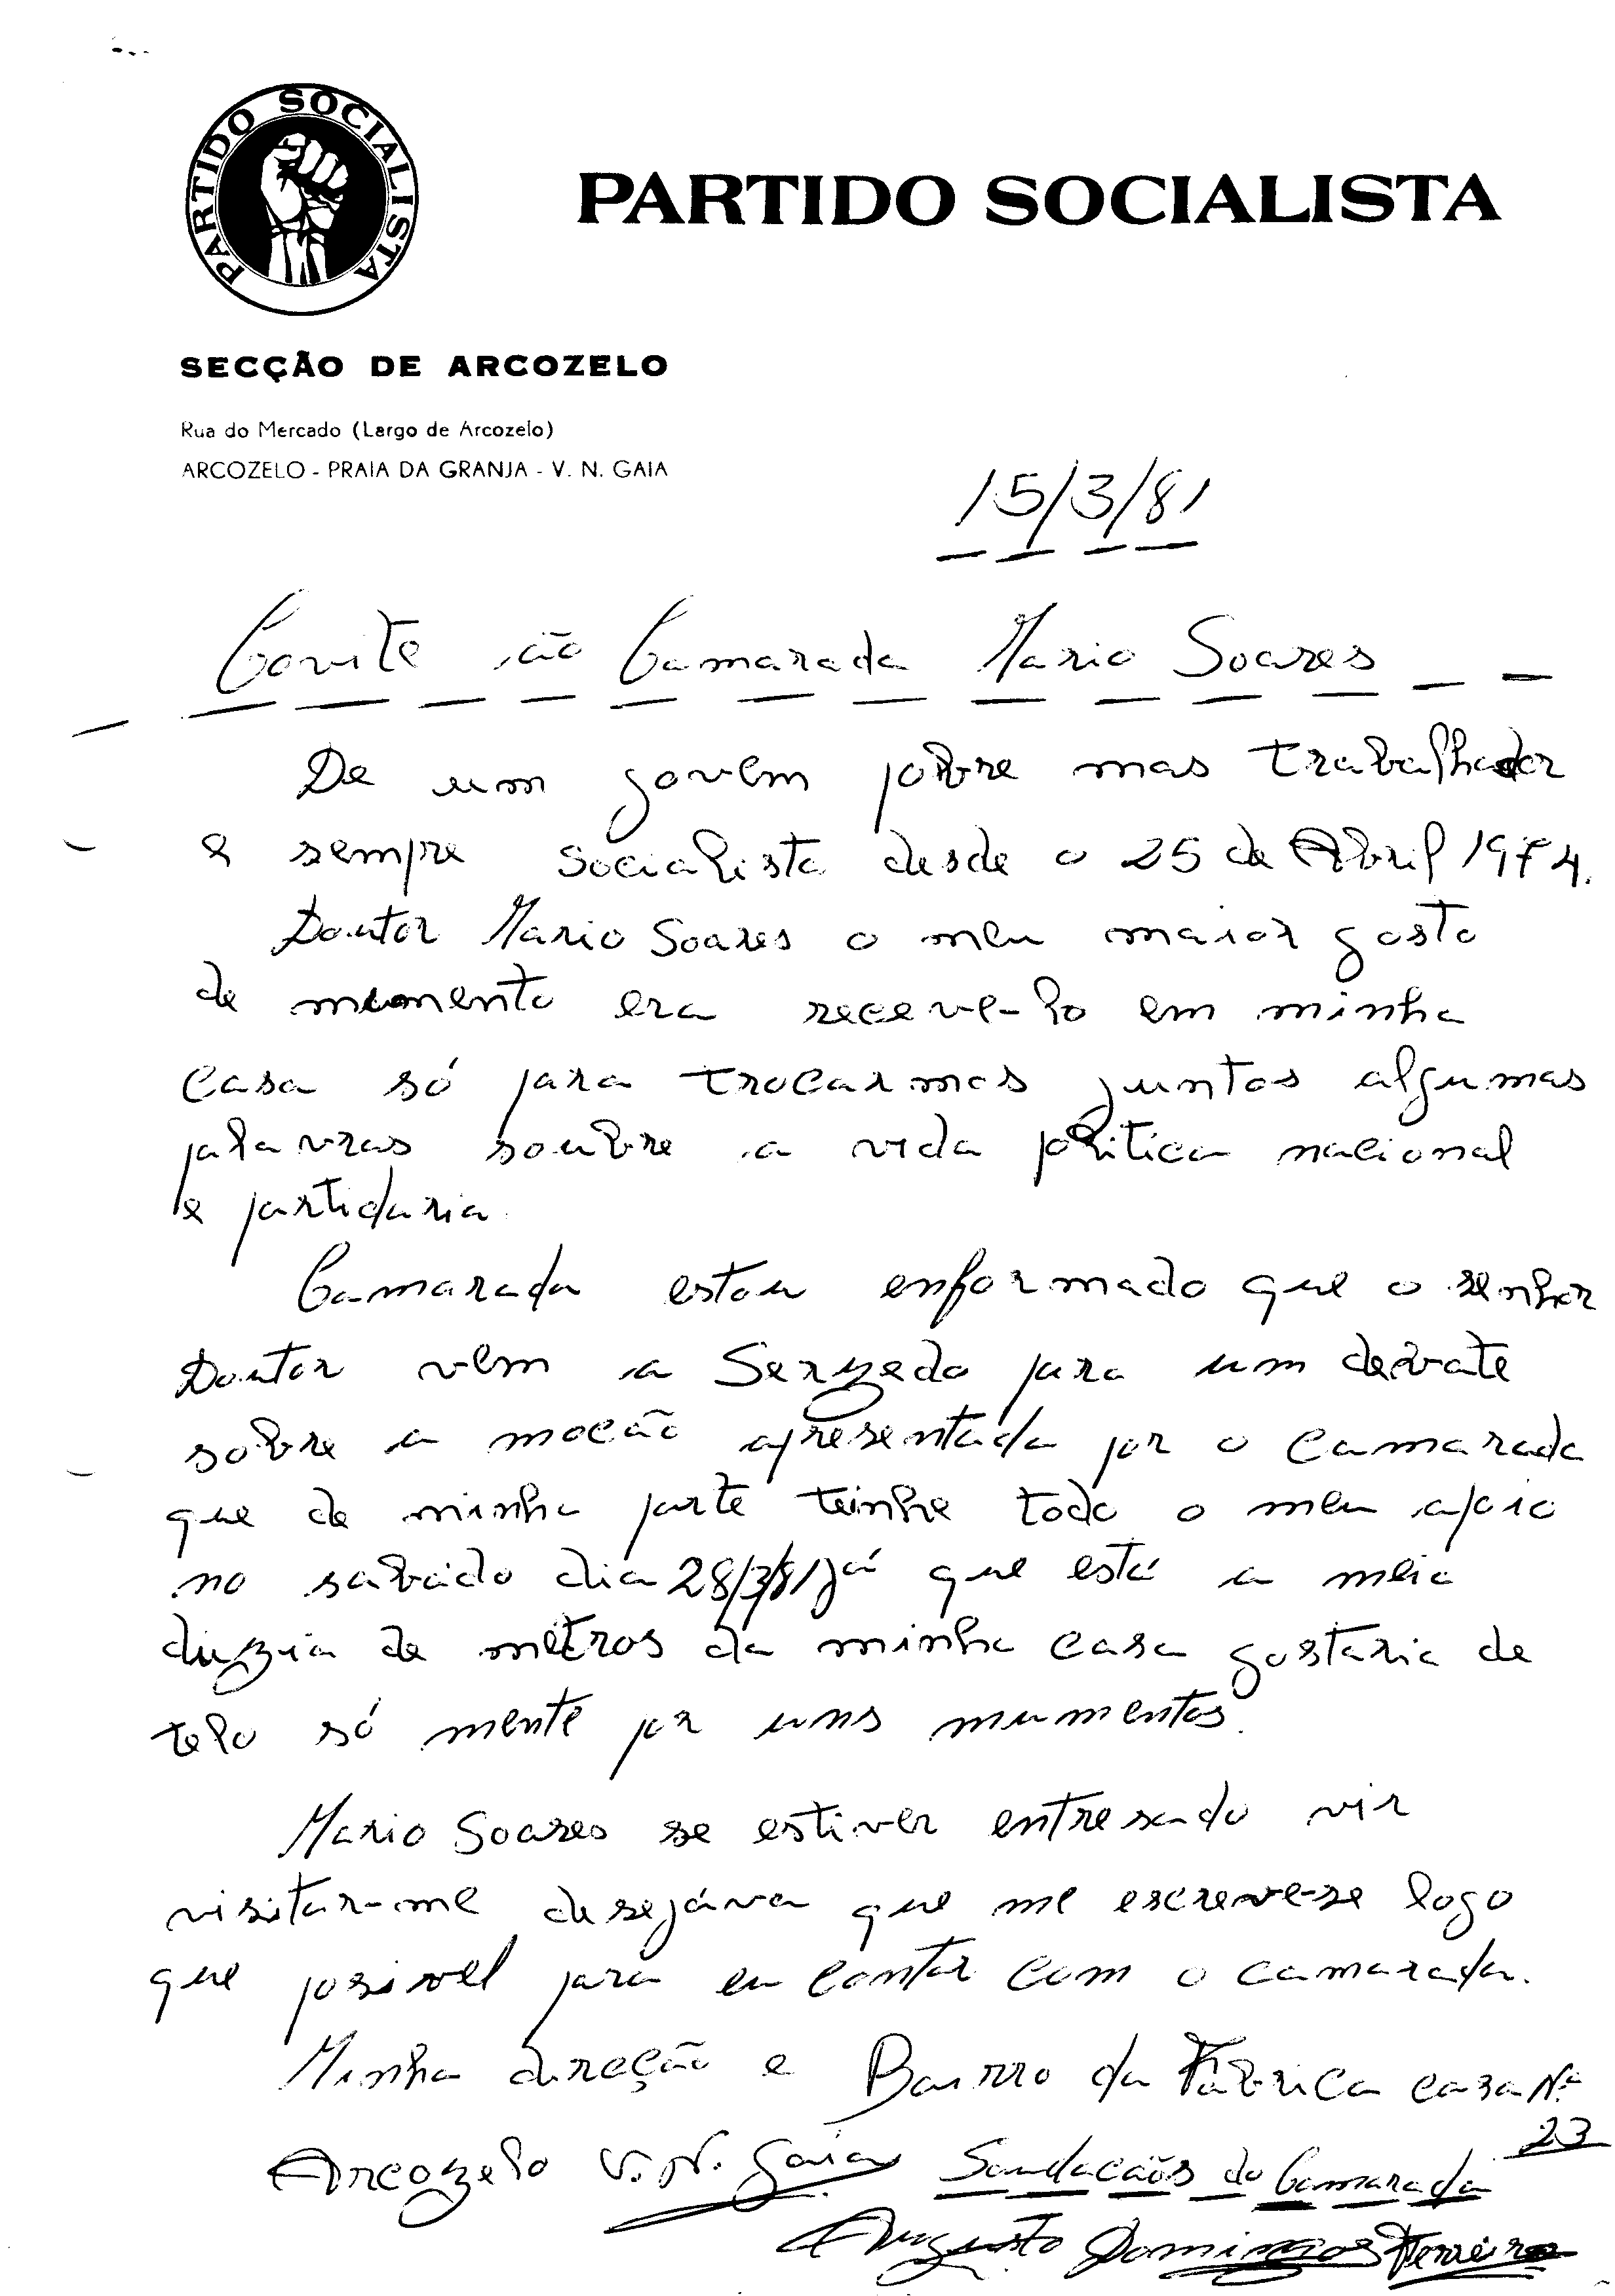 PARTIDO SOCIALISTA
PARTIDO SOCIALISTA
SECÇÃO DE ARCOZELO
Rua do Mercado (Largo de Arcozelo)
ARCOZELO - PRAIA DA GRANJA - V. N. GAIA
15/3/81
Convite ão Camarada Mario Soares
De um govem pobre mas trabalhador
e sempre socialista desde o 25 de Abril 1974.
Doutor Mario Soares o meu maior gosto
de mumento era receve-lo em minha
casa só para trocarmos juntos algumas
palavras soubre a vida politica nacional
e partidaria.
Camarada estou enformado que o senhor
Doutor vem a Serzedo para um debate
sobre a moção apresentada por o camarada
que de minha parte teinhe todo o meu apoio
no sabádo dia 28/3/81 já que está a meia
duzia de métros da minha casa gostaria de
telo só mente por uns mumentos.
Mario Soares se estiver entresado vir
visitar-me desejáva que me escreve-se logo
que posivel para eu contar com o camarada.
Minha direção e Bairro da Fábrica casa Nº
23
Arcozelo V. N. Gaia Saudacãos do Camarada
Augusto Domingos Ferreira